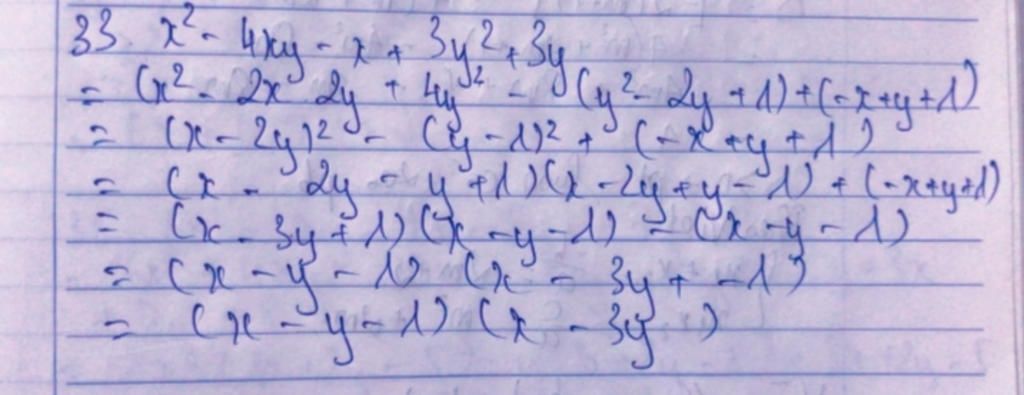 33 x² - 4xy - x + 3y² + 3y
= (x² - 2x 2y + 4y² - (y² - 2y + 1) + (-x+y+1)
= (x - 2y)² - (y - 1)² + (-x+y+1)
= (x - 2y - y + 1)(x - 2y + y - 1) + (-x+y+1)
= (x - 3y + 1)(x - y - 1) - (x - y - 1)
= (x - y - 1) (x - 3y + - 1)
= (x - y - 1)(x - 3y)